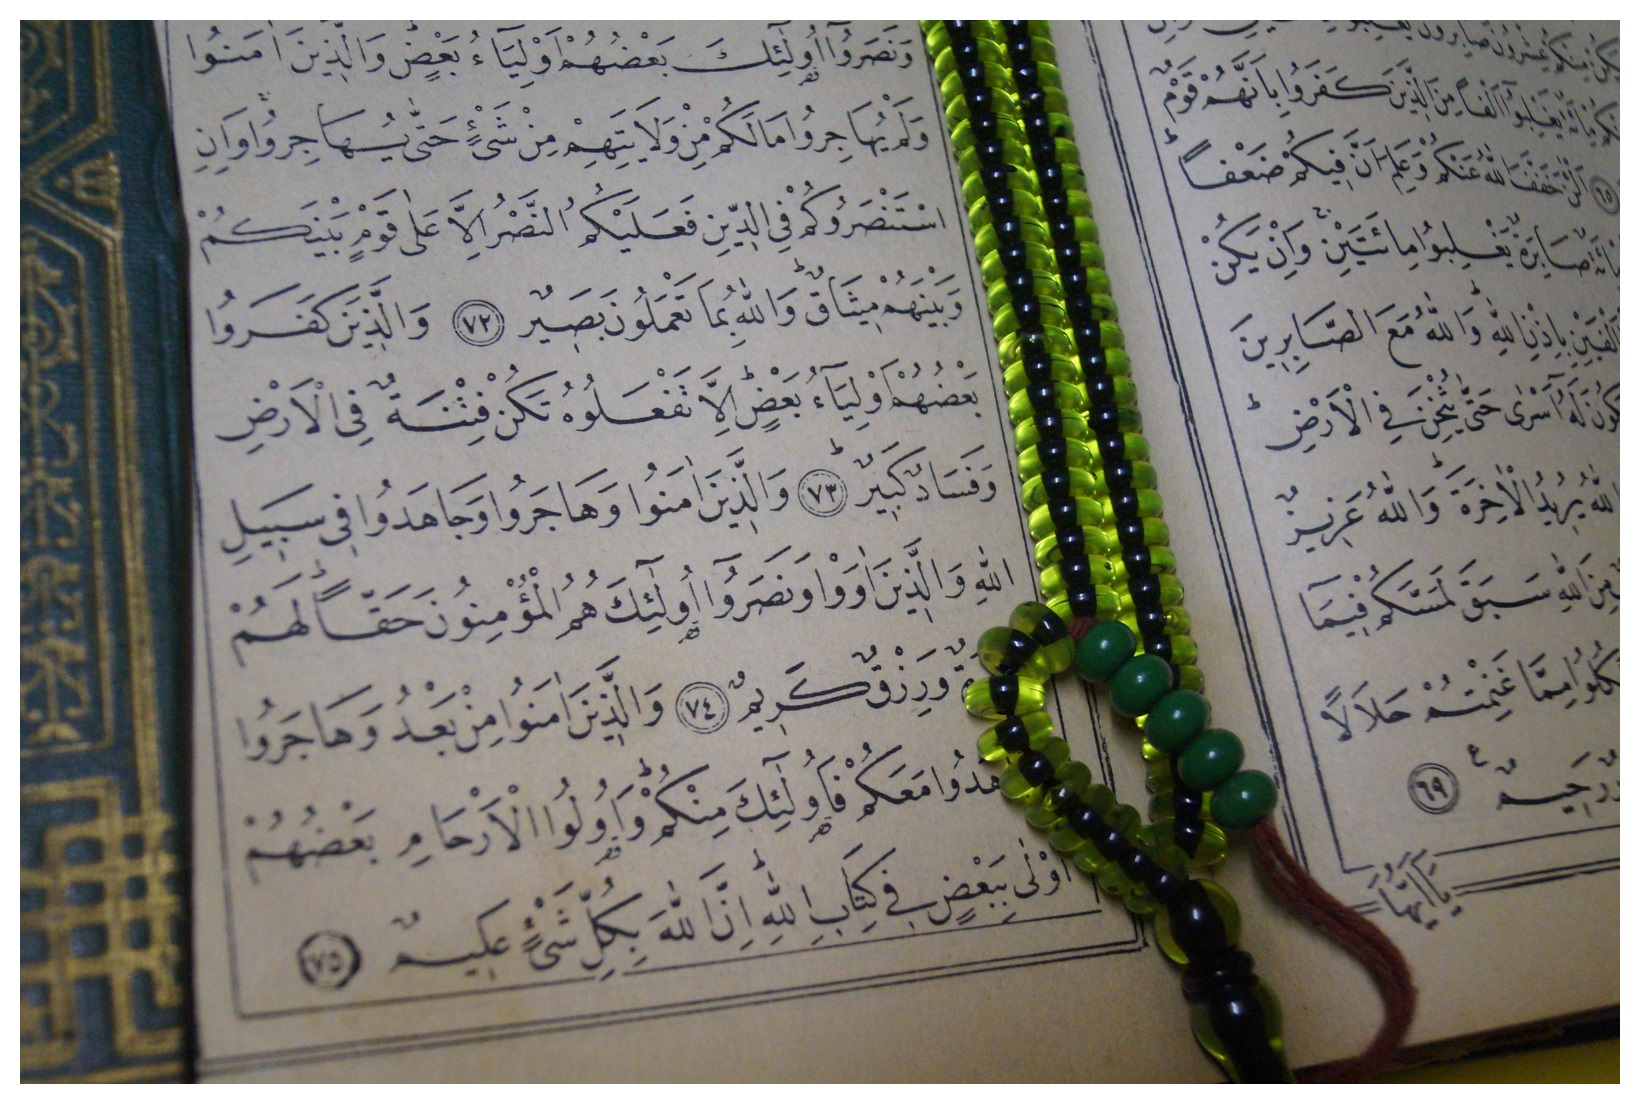 يَكُنْ مِنْكُمْ عِشْرُونَ صَابِرُونَ
مِنْكُمْ مِائَةٌ يَغْلِبُوا أَلْفًا مِنَ الَّذِينَ كَفَرُوا بِأَنَّهُمْ قَوْمٌ
﴿٦٥﴾ اَلْئٰنَ خَفَّفَ اللّٰهُ عَنْكُمْ وَعَلِمَ اَنَّ فِيكُمْ ضَعْفًا
مِائَةٌ صَابِرَةٌ يَغْلِبُوا مِائَتَيْنِ وَاِنْ يَكُنْ
اَلْفَيْنِ بِاِذْنِ اللّٰهِ وَاللّٰهُ مَعَ الصَّابِرِينَ
يَكُونَ لَهُ اَسْرٰى حَتّٰى يُثْخِنَ فِي الْاَرْضِ
اللّٰهُ يُرِيدُ الْاٰخِرَةَ وَاللّٰهُ عَزِيزٌ
مِنَ اللّٰهِ سَبَقَ لَمَسَّكُمْ فِيمَا
فَكُلُوا مِمَّا غَنِمْتُمْ حَلَالًا
رَحِيمٌ ﴿٦٩﴾
يَا اَيُّهَا
وَنَصَرُوا اُولٰئِكَ بَعْضُهُمْ اَوْلِيَاءُ بَعْضٍ وَالَّذِينَ اٰمَنُوا
وَلَمْ يُهَاجِرُوا مَا لَكُمْ مِنْ وَلَايَتِهِمْ مِنْ شَيْءٍ حَتّٰى يُهَاجِرُوا وَاِنِ
اسْتَنْصَرُوكُمْ فِي الدِّينِ فَعَلَيْكُمُ النَّصْرُ اِلَّا عَلٰى قَوْمٍ بَيْنَكُمْ
وَبَيْنَهُمْ مِيثَاقٌ وَاللّٰهُ بِمَا تَعْمَلُونَ بَصِيرٌ ﴿٧٢﴾ وَالَّذِينَ كَفَرُوا
بَعْضُهُمْ اَوْلِيَاءُ بَعْضٍ اِلَّا تَفْعَلُوهُ تَكُنْ فِتْنَةٌ فِي الْاَرْضِ
وَفَسَادٌ كَبِيرٌ ﴿٧٣﴾ وَالَّذِينَ اٰمَنُوا وَهَاجَرُوا وَجَاهَدُوا فِي سَبِيلِ
اللّٰهِ وَالَّذِينَ اٰوَوْا وَنَصَرُوا اُولٰئِكَ هُمُ الْمُؤْمِنُونَ حَقًّا لَهُمْ
وَرِزْقٌ كَرِيمٌ ﴿٧٤﴾ وَالَّذِينَ اٰمَنُوا مِنْ بَعْدُ وَهَاجَرُوا
هَدُوا مَعَكُمْ فَاُولٰئِكَ مِنْكُمْ وَاُولُوا الْاَرْحَامِ بَعْضُهُمْ
اَوْلٰى بِبَعْضٍ فِي كِتَابِ اللّٰهِ اِنَّ اللّٰهَ بِكُلِّ شَيْءٍ عَلِيمٌ ﴿٧٥﴾